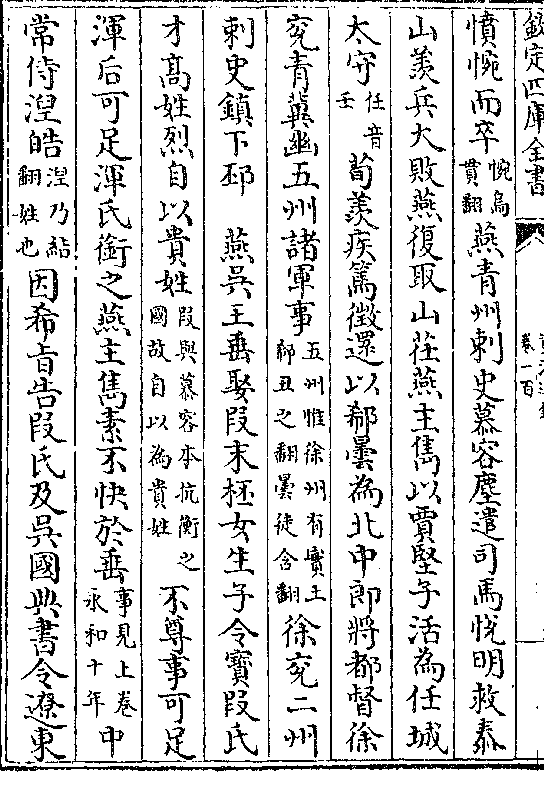 欽定四庫全書
卷一百
憤惋而卒惋烏貫翻燕青州刺史慕容塵遣司馬恱明救泰
山羨兵大敗燕復取山茌燕主雋以賈堅子活為任城
太守任音壬荀羨疾篤徵還以郗曇為北中郎將都督徐
兖青冀幽五州諸軍事五州惟徐州有實土郗丑之翻曇徒含翻徐兖二州
刺史鎮下邳 燕吳王垂娶段末柸女生子令寳段氏
才髙姓烈自以貴姓段與慕容本抗衡之國故自以為貴姓不尊事可足
渾后可足渾氏銜之燕主雋素不快於垂事見上卷永和十年中
常侍湼皓湼乃結翻姓也因希㫖告段氏及吳國典書令遼東